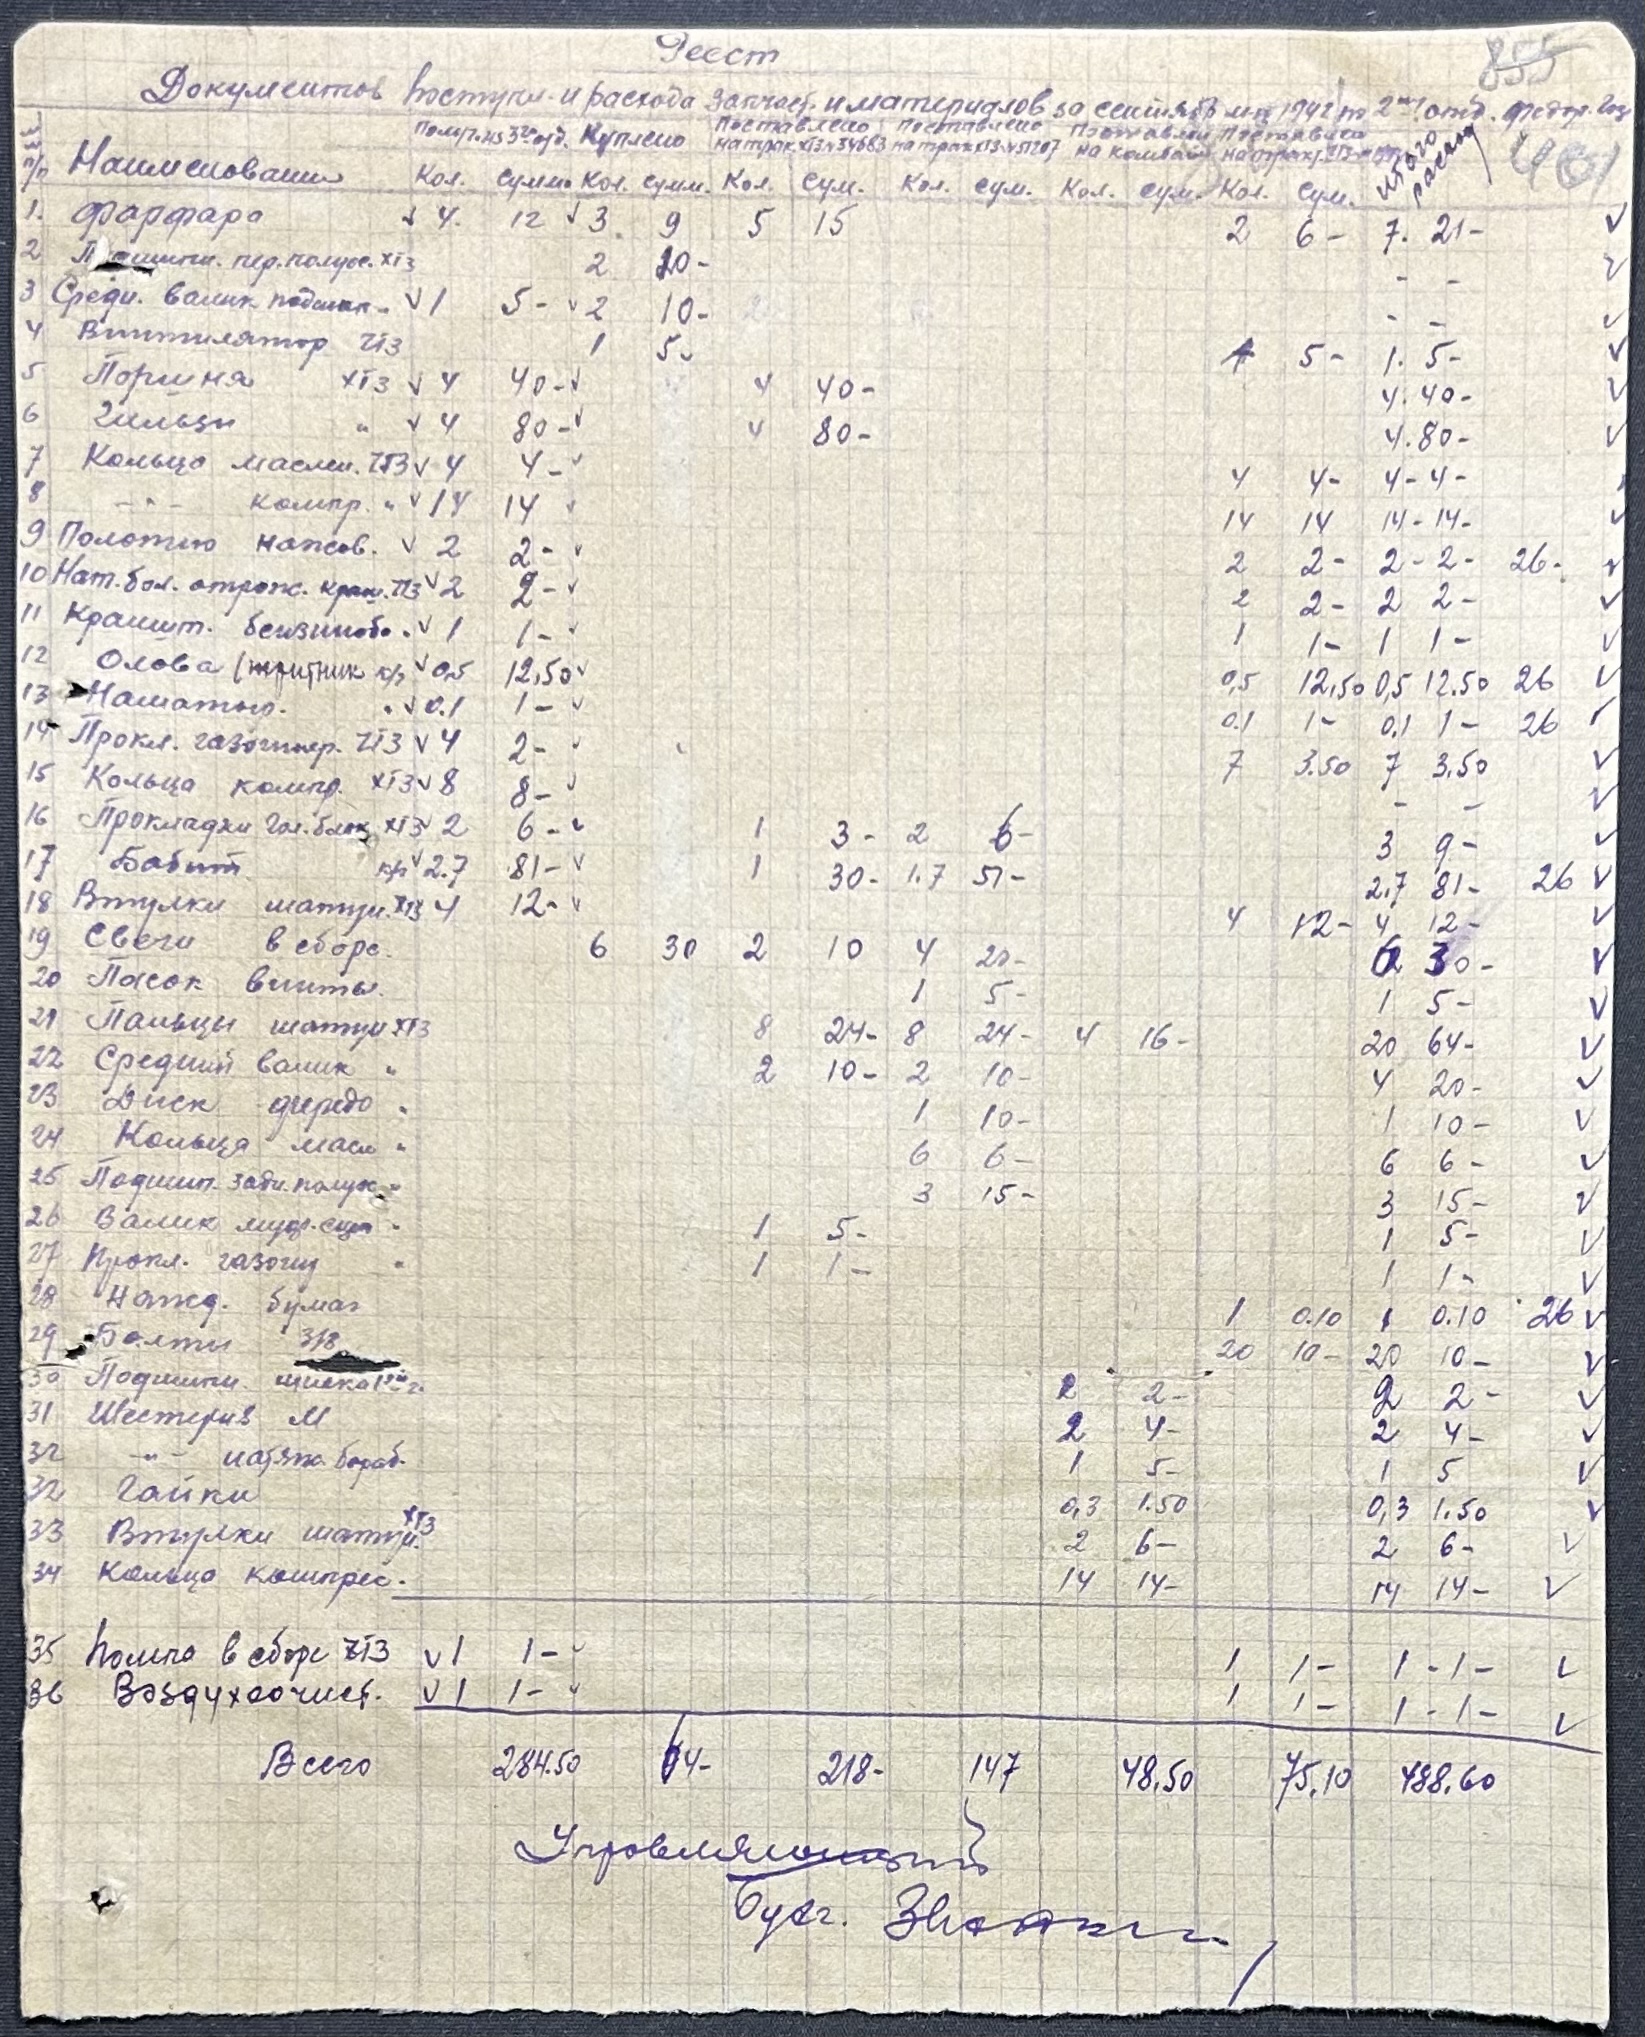 Реест
855
Документов поступл. и расхода запчаст. и материалов за сентябрь м-ц 1942 по 2му отд. Федор. Гос
п/п Наименовании Кол. сумма Куплено Кол. сумм. Поставлено на трак ХТЗ №34663 Кол. сум. Поставлено на трак ХТЗ №51207 Кол. сум. на комбайн Кол. сум. Кол. сум. Итого расход 401
1. Фарфара √ 4. 12 √ 3. 9 5 15 2 6- 7. 21- √
2 пер. полуос. ХТЗ 2 20- - - √
3 Средн. валик подшип. √ 1 5- √ 2 10- - - √
4 Вентилятор ЧТЗ 1 5- 1 5- 1. 5- √
5 Поршня ХТЗ √ 4 40- √ 4 40- 4. 40- √
6 Гильзы " √ 4 80- √ 4 80- 4. 80- √
7 Кольца маслян. ЧТЗ √ 4 4- √ 4 4- 4- 4-
8 -"- компр. " √ 14 14 √ 14 14 14- 14- √
9 Полотно ножов. √ 2 2- √ 2 2- 2- 2- 26- √
10 Нат. бол. ЧТЗ √ 2 2- √ 2 2- 2 2- √
11 Кранит. бензинобо. √ 1 1- √ 1 1- 1 1- √
12 Олова (третник к/г √ 0,5 12,50 √ 0,5 12,50 0,5 12.50 26 √
13 Нашатыр. " √ 0.1 1- √ 0.1 1- 0.1 1- 26 √
14 Прокл. ЧТЗ √ 4 2- √ 7 3.50 7 3.50 √
15 Кольца компр. ХТЗ √ 8 8- √ - - √
16 Прокладки гол. блок ХТЗ √ 2 6- √ 1 3- 2 6- 3 9- √
17 Бабит к/г √ 2.7 81- √ 1 30- 1.7 51- 2.7 81- 26 √
18 Втулки шатун. ХТЗ 4 12- √ 4 12- 4 12- √
19 Свечи в сборе. 6 30 2 10 4 20- 6 30- √
20 Пасок винты. 1 5- 1 5- √
21 Пальцы шатун ХТЗ 8 24- 8 24- 4 16- 20 64- √
22 Средний валик " 2 10- 2 10- 4 20- √
23 Диск ферадо " 1 10- 1 10- √
24 Кольца масл " 6 6- 6 6- √
25 Подшип. задн. полуос " 3 15- 3 15- √
26 Валик муф. сцеп " 1 5- 1 5- √
27 Прокл. газопр " 1 1- 1 1- √
28 Нажд. бумаг 1 0.10 1 0.10 26 √
29 Болты 3/8 20 10- 20 10- √
30 Подшипн. шнека 2 2- 2 2- √
31 Шестерня М 2 4- 2 4- √
32 -"- натяж. бараб. 1 5- 1 5 √
32 Гайки 0,3 1.50 0,3 1.50 √
33 Втулки шатун. ХТЗ 2 6- 2 6- √
34 Кольца компрес. 14 14- 14 14- √
35 Помпа в сборе ЧТЗ √ 1 1- √ 1 1- 1- 1- √
36 Воздухоочист. √ 1 1- √ 1 1- 1- 1- √
Всего 284.50 218- 147 48,50 75,10 488.60
Управляющий
Бухг.